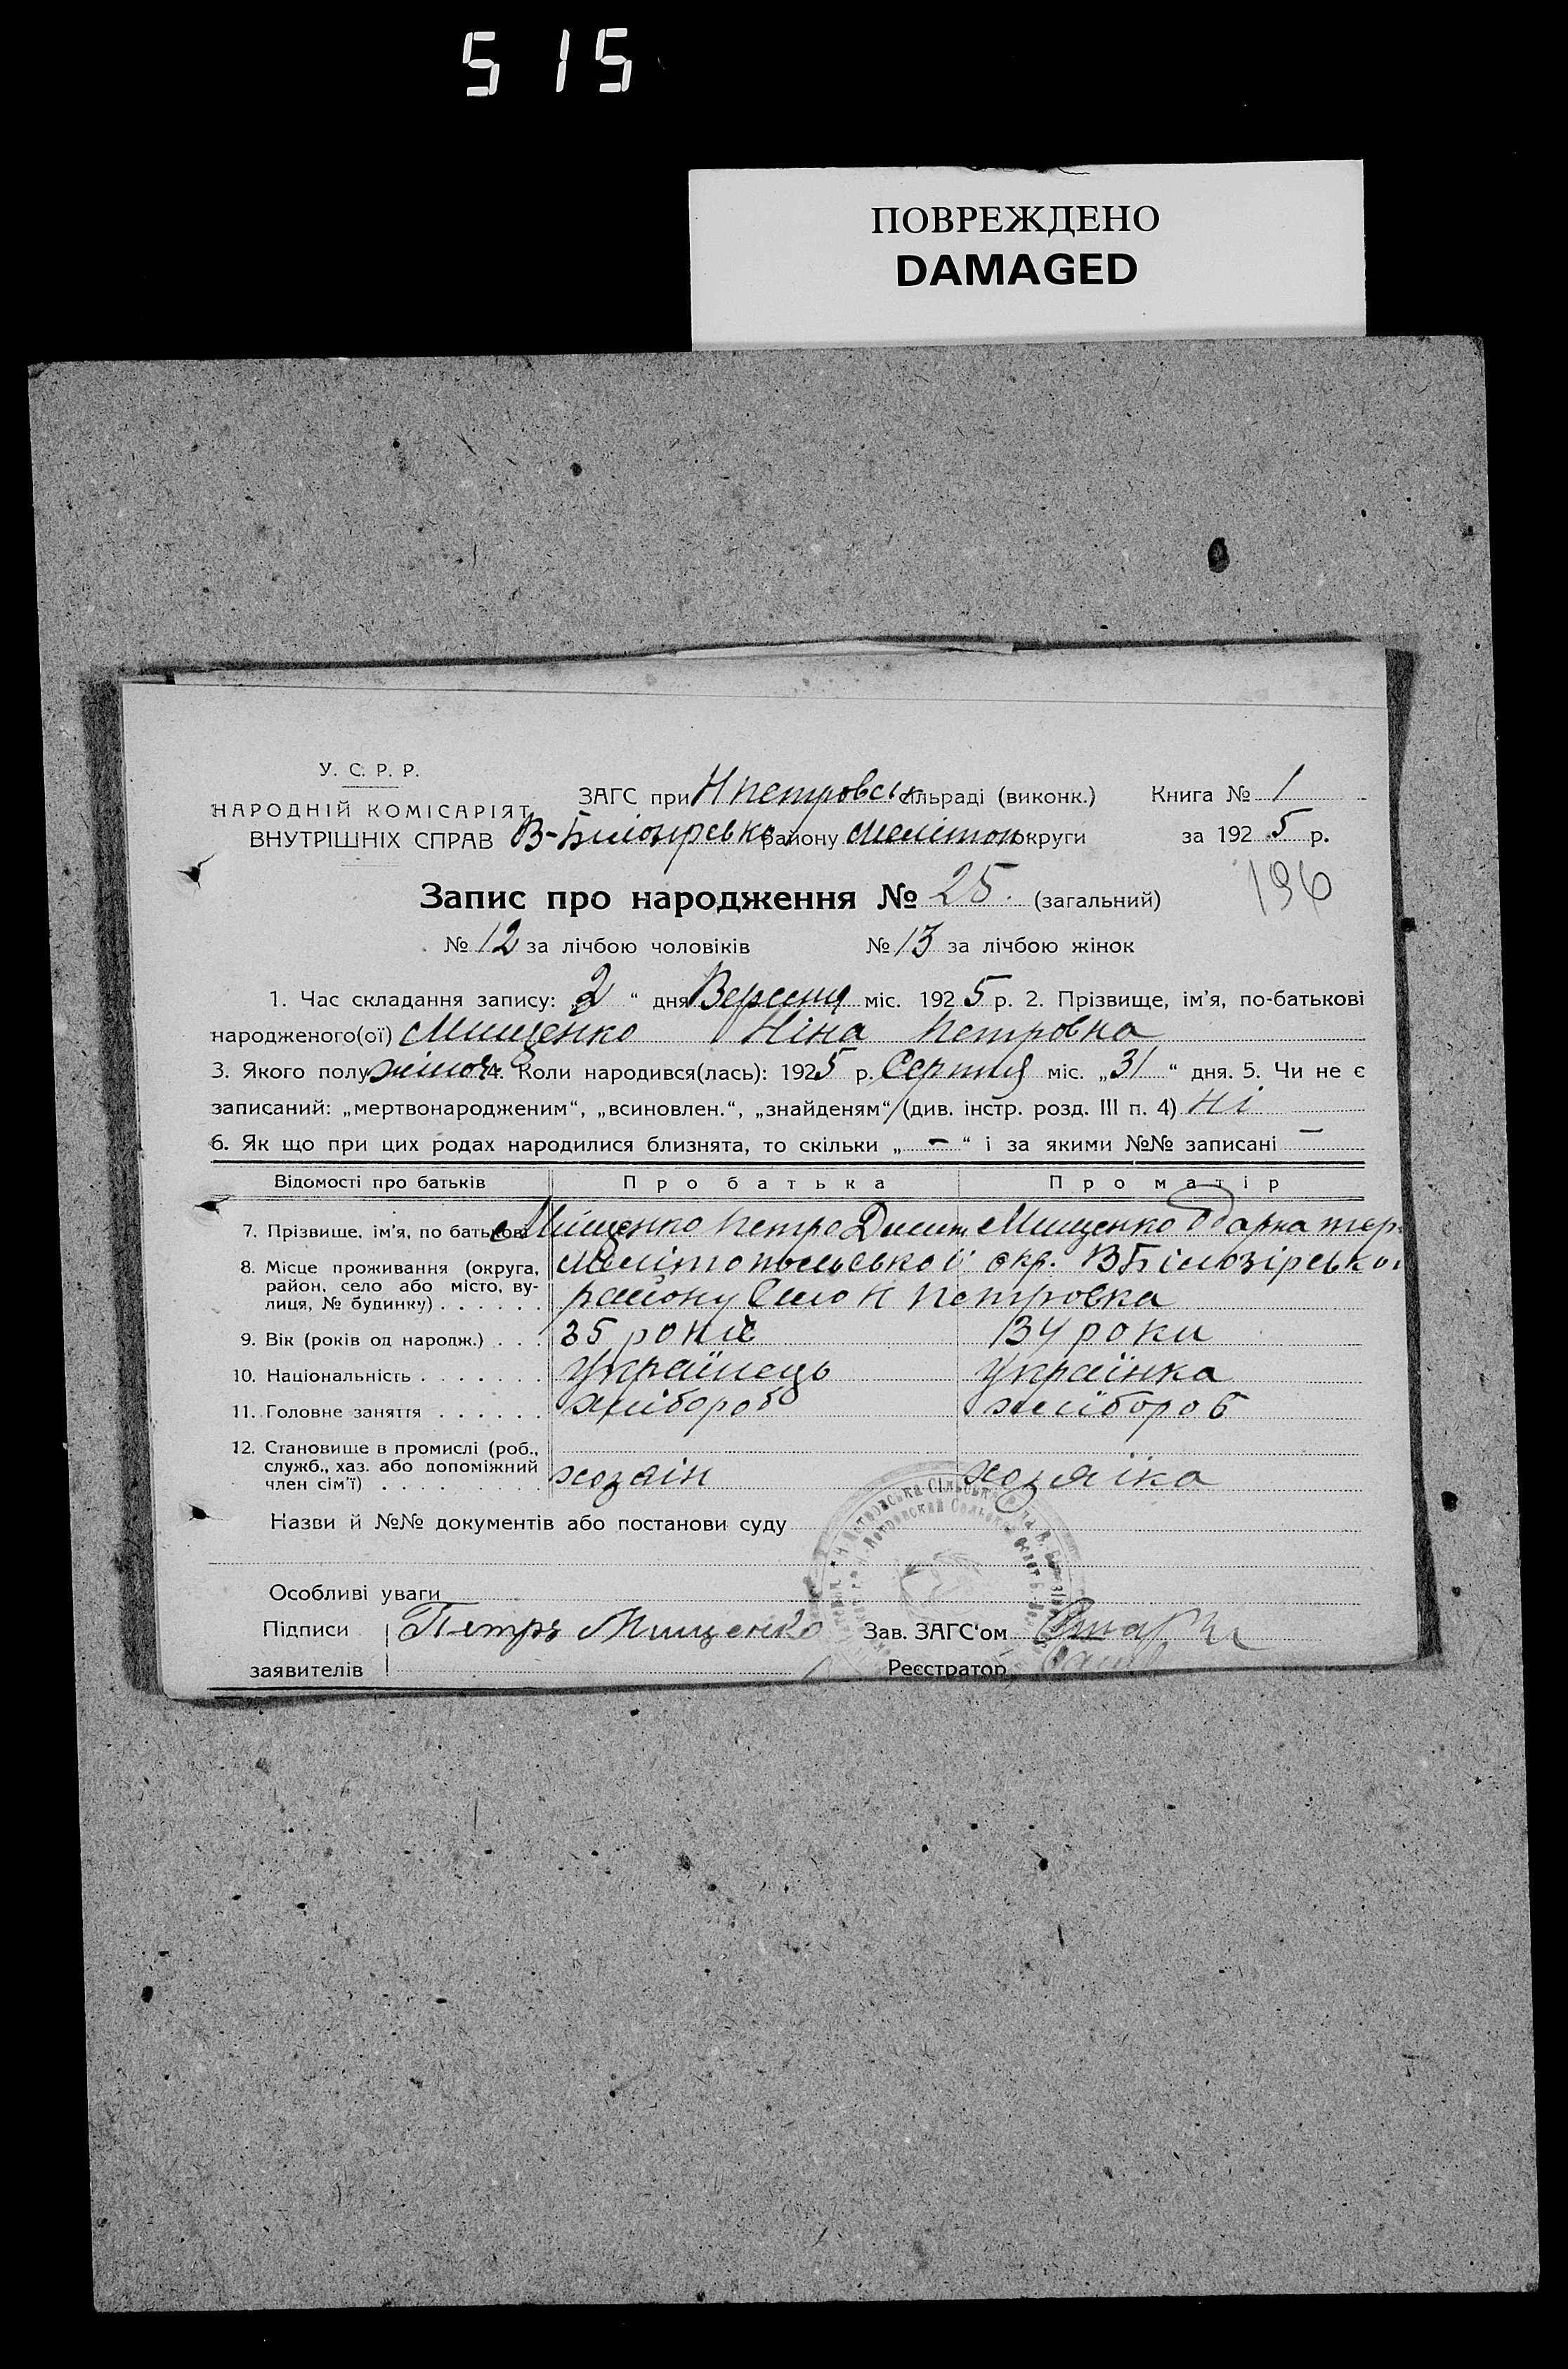 515
ПОВРЕЖДЕНО
DAMAGED
У. С. Р. Р.
НАРОДНІЙ КОМІСАРІЯТ
ВНУТРІШНІХ СПРАВ
ЗАГС при Нпетровськ сільраді (виконк.) Книга № 1
району Меліитоп округи за 1925 р.
196
Запис про народження № 25. (загальний)
№ 12 за лічбою чоловіків № 13 за лічбою жінок
1. Час складання запису: „2“ дня Вересня міс. 1925 р. 2. Прізвище, ім'я, по-батькові
народженого(ої) Мищенко Ніна Петровна
3. Якого полу жіноч 4. Коли народився(лась): 1925 р. Серпня міс. „31“ дня. 5. Чи не є
записаний: „мертвонародженим“, „всиновлен.“, „знайденям“ (див. інстр. розд. III п. 4) Ні
6. Як що при цих родах народилися близнята, то скільки „-“ і за якими №№ записані -
Відомості про батьків Про батька Про матір
7. Прізвище, ім'я, по батькові Міщенко Петро Мищенко Одарка
8. Місце проживання (округа, район, село або місто, вулиця, № будинку) . . . . . . Мелітопольської окр. ВБілозірського
району Село Н Петровка
9. Вік (років од народж.) . . . 35 років 34 роки
10. Національність . . . . . . . Українець Українка
11. Головне заняття . . . . . . хлібороб хлібороб
12. Становище в промислі (роб., служб., хаз. або допоміжний член сім'ї) . . . . . . . . . хозяін хозяіка
Назви й №№ документів або постанови суду
Особливі уваги
Підписи Петръ Мищенко Зав. ЗАГС'ом
заявителів Реєстратор